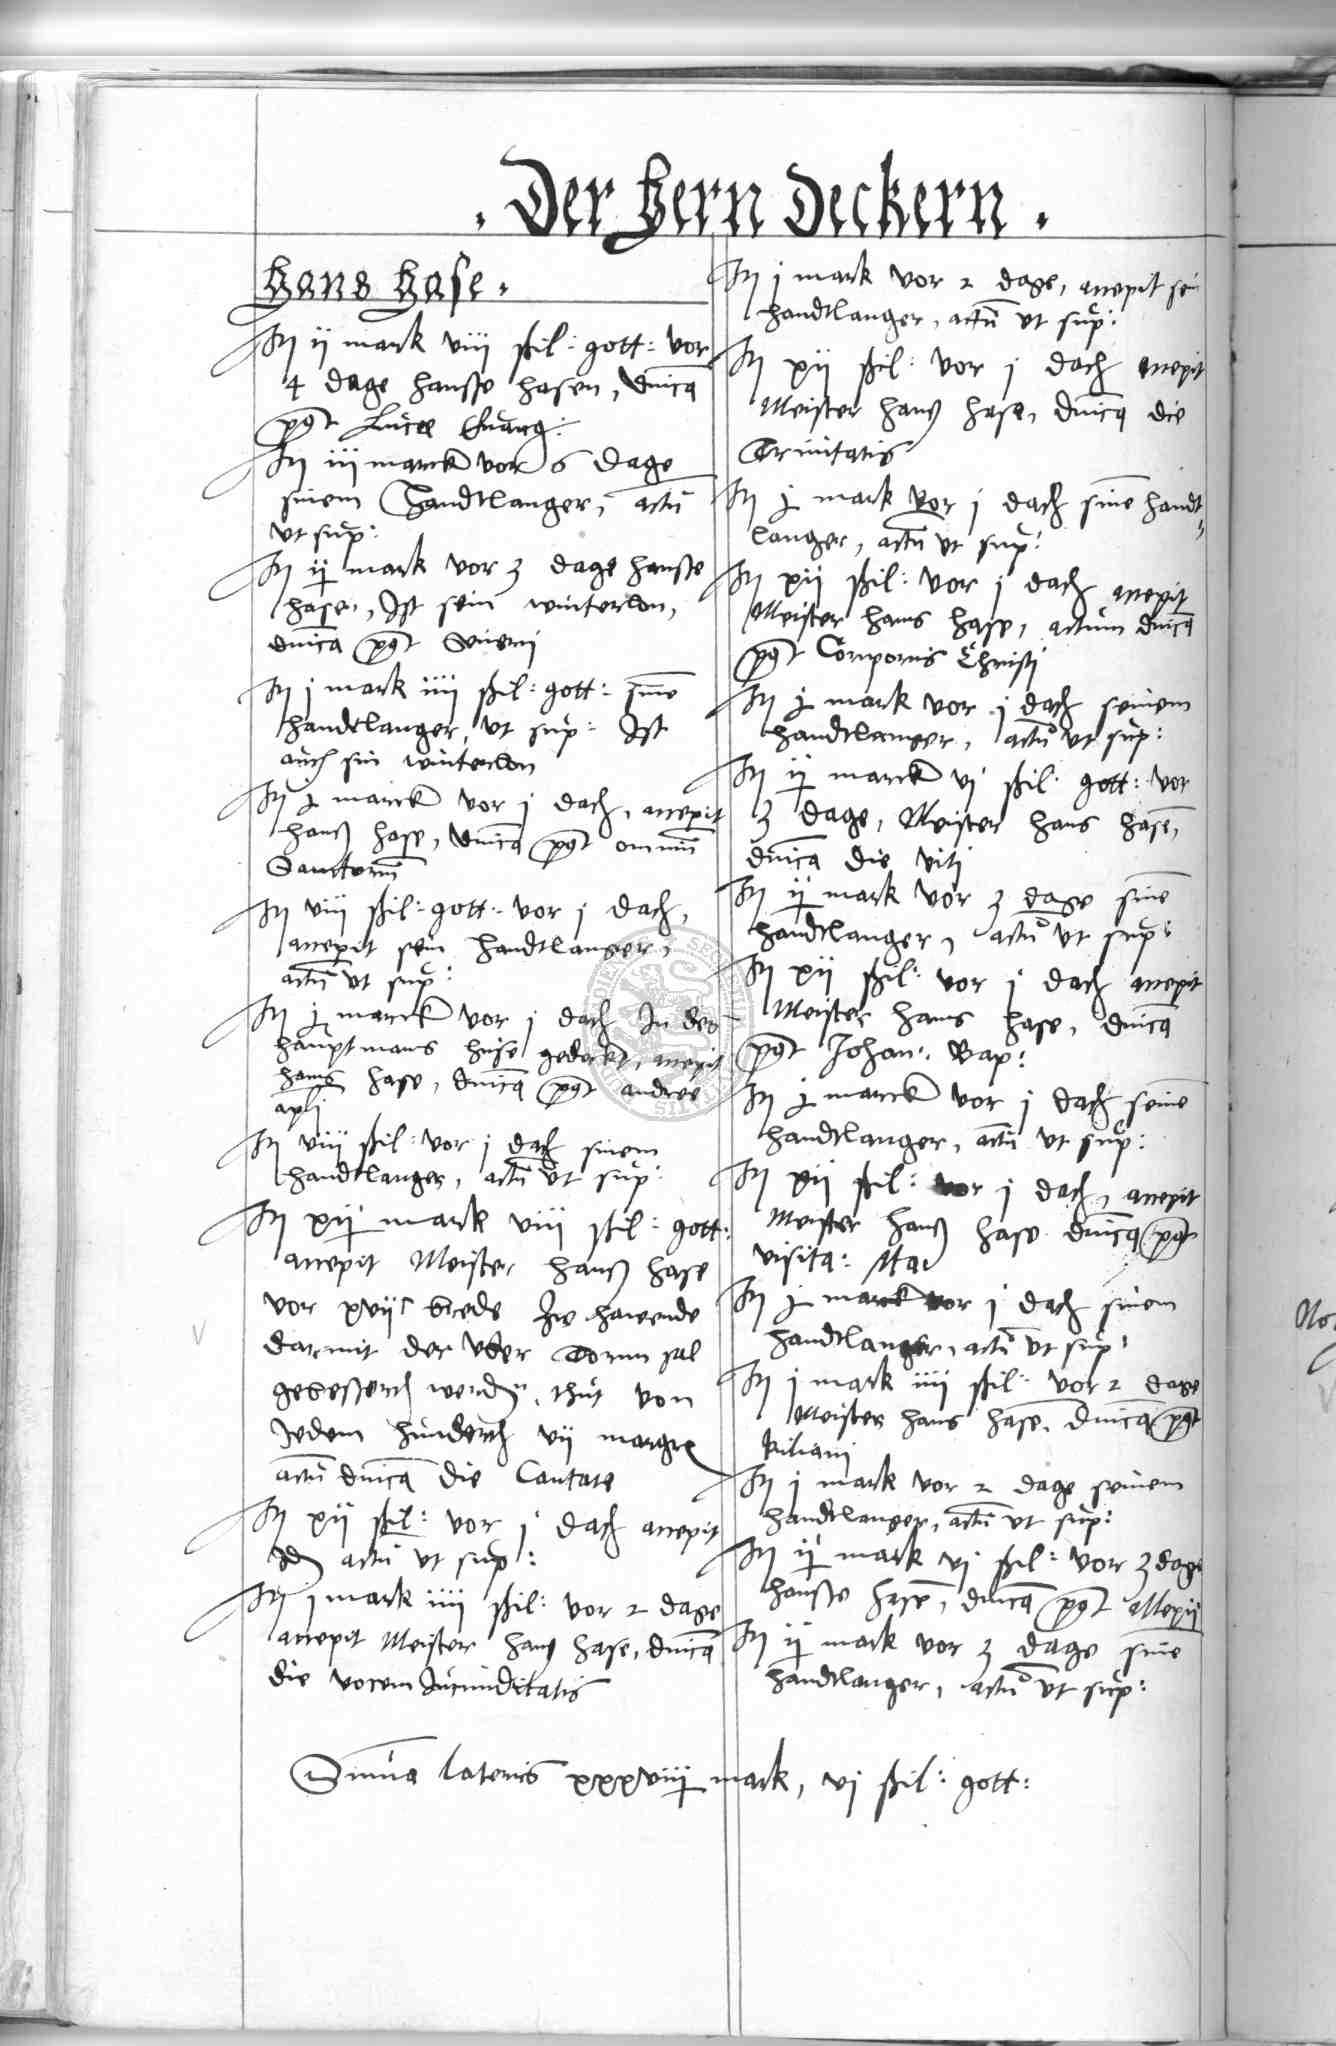 . Der Hern Deckern .
Hans Hase .
Itꝫ ij mark viij ßil: gott: vor
4 dage Hansse Hasen, dnica
post Luce Evang:
Itꝫ iij marck vor 6 dage
sinem Handtlanger, actu
ut sup:
Itꝫ ij mark vor 3 dage Hansse
Hasen, Ist sein winterlon,
dnica post Severi
Itꝫ j mark iiij ßil: gott: sine
Handtlanger, ut sup: Ist
auch sin winterlon
Itꝫ j marck vor j dach, accepit
Hanß Hase, dnica post omniu
Sanctoru
Itꝫ viij ßil: gott: vor j dach,
accepit sein Handtlanger,
actu ut sup:
Itꝫ j marck vor j dach In des
Hauptmans Huse gedeckt, accepit
Hans Hase, dnica post andree
apli
Itꝫ viij ßil: vor j dach sinem
Handtlanger, actu ut sup:
Itꝫ xij mark viij ßil: gott:
accepit Meister Hanß Hase
vor xvijᶜ brede zw hawende
darmit der Torm sal
gebessertt werden, thut von
Jedem Hundertt vij margr
actu dnica die Cantate
Itꝫ xij ßil: vor j dach accepit
Id actu ut sup:
Itꝫ j mark iiij ßil: vor 2 dage
accepit Meister Hans Hase, dnica
die vocem Jucunditatis
Itꝫ j mark vor 2 dage, accepit sein
Handtlanger, actu ut sup:
Itꝫ xij ßil: vor j dach accepit
Meister Hanß Hase, dnica die
Trinitatis
Itꝫ j mark vor j dach sine Handt
langer, actu ut sup:
Itꝫ xij ßil: vor j dach accepit
Meister Hans Hase, actum dnica
post Corporis Christi
Itꝫ j mark vor j dach seinem
Handtlanger, actu ut sup:
Itꝫ ij marck vj ßil: gott: vor
3 dage, Meister Hans Hase,
dnica die viti
Itꝫ ij mark vor 3 dage sine
Handtlanger, actu ut sup:
Itꝫ xij ßil: vor j dach accepit
Meister Hans Hase, dnica
post Johan: Bap:
Itꝫ j marck vor j dach seine
Handtlanger, actu ut sup:
Itꝫ xij ßil: vor j dach, accepit
Meister Hanß Hase dnica post
visita: Mar
Itꝫ j marck vor j dach sinem
Handtlanger, actu ut sup:
Itꝫ j mark iiij ßil: vor 2 dage
Meister Hans Hase, dnica post
Kiliani
Itꝫ j mark vor 2 dage seinem
Handtlanger, actu ut sup:
Itꝫ ij mark vj ßil: vor 3 dage
Hansse Hase, dnica post Alexij
Itꝫ ij mark vor 3 dage sine
Handtlanger, actu ut sup:
Suma lateris xxxviij mark, vj ßil: gott: